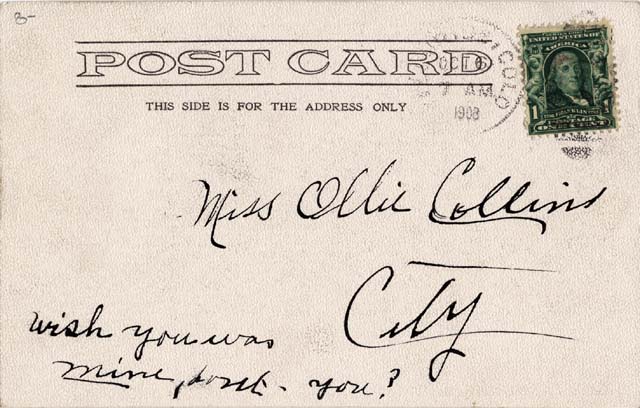 8-
POST CARD
THIS SIDE IS FOR THE ADDRESS ONLY
COLO
OCT 6
7 AM
1908
UNITED STATES OF AMERICA
1 1
POSTAGE
ONE CENT
Miss Ollie Collins
City
wish you was
mine, don't you?